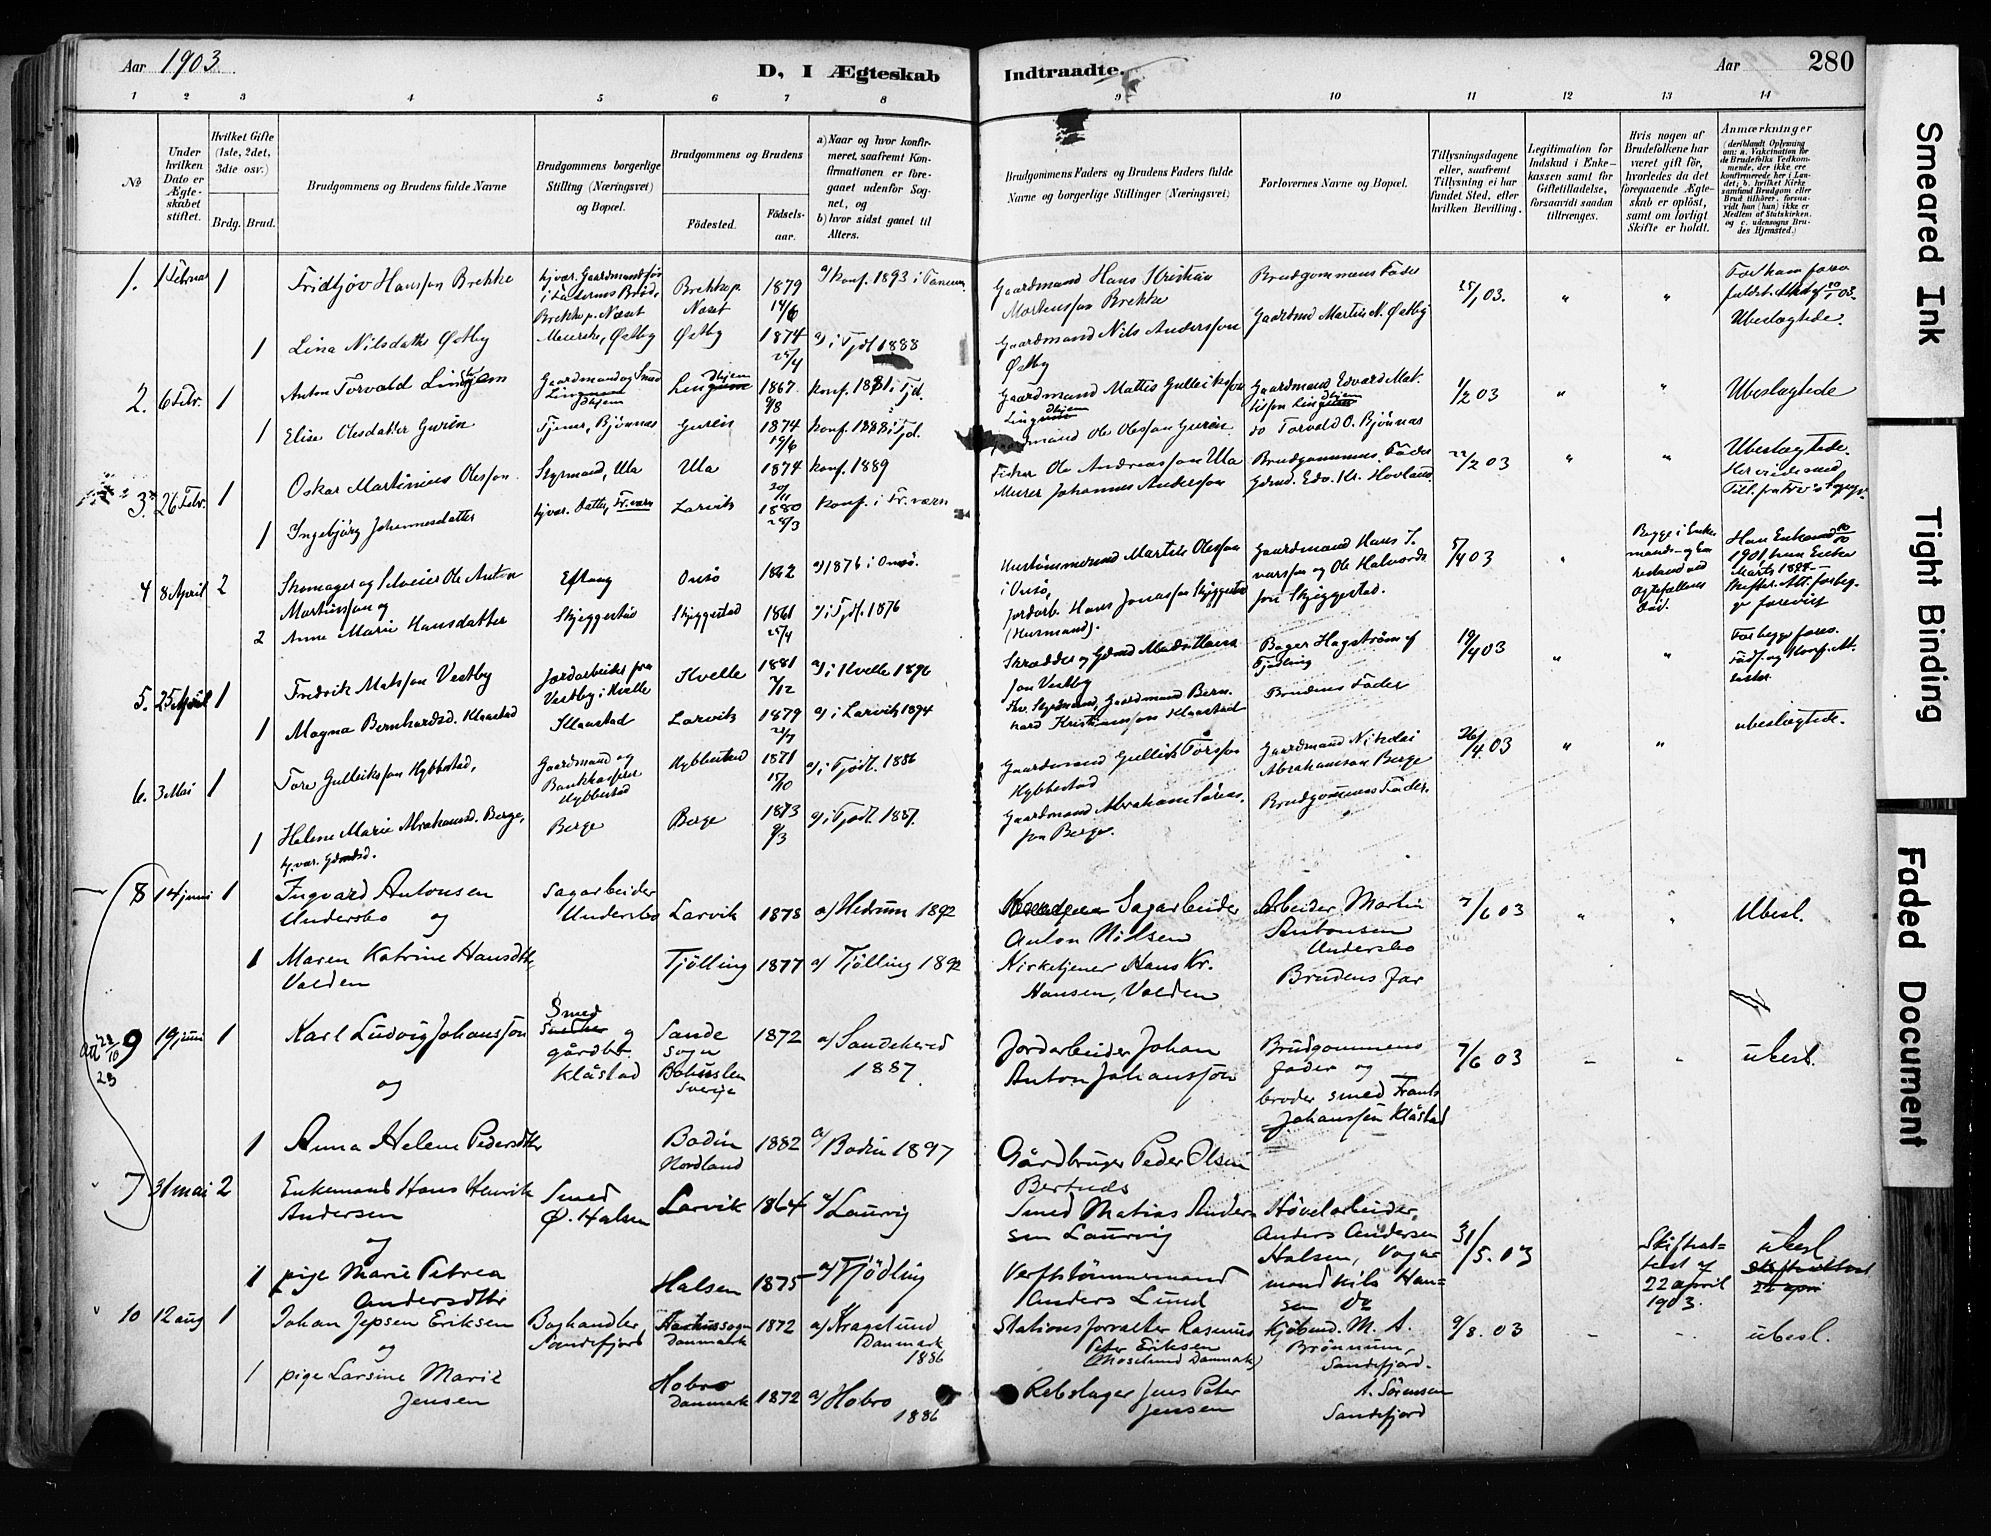 Aar 1903
D, I Ægteskab
Indtraadte.
Aar 280
1 2 3 4 5 6 7 8 9 10 11 12 13 14
№
Under hvilken Dato er Ægteskabet stiftet.
Hvilket Gifte (1ste, 2det, 3die osv.)
Brdg. Brud.
Brudgommens og Brudens fulde Navne
Brudgommens borgerlige Stilling (Næringsvei) og Bopæl.
Brudgommens og Brudens
Fødested.
Fødselsaar.
a) Naar og hvor konfirmeret, saafremt Konfirmationen er foregaaet udenfor Sognet, og
b) hvor sidst gaaet til Alters.
Brudgommens Faders og Brudens Faders fulde Navne og borgerlige Stillinger (Næringsvei)
Forlovernes Navne og Bopæl.
Tillysningsdagene eller, saafremt Tillysning ei har fundet Sted, efter hvilken Bevilling.
Legitimation for Indskud i Enkekassen samt for Giftetilladelse, forsaavidt saadan tiltrænges.
Hvis nogen af Brudefolkene har været gift før, hvorledes da det foregaaende Ægteskab er opløst, samt om lovligt Skifte er holdt.
Anmærkninger (deriblandt Oplysning om: a. Vakcination for de Brudefolks Vedkommende, der ikke ere konfirmerede her i Landet; b. hvilket Kirkesamfund Brudgom eller Brud tilhører, forsaavidt han (hun) ikke er Medlem af Statskirken, og c. udensogns Brudes Hjemsted.)
1. 1 Februar 1
Fridtjøv Hansson Brekke
Brekke p. Næset
1879 14/6
a) konf. 1893 i Tanum
Gaardmand Hans Kristian Martensson Brekke
Brudgommens Fader
25/1 03.
1 Lina Nilsdatter Østby
Meierske, Østby
Østby
1874 25/4
a) i Tjøl 1888
Gaardmand Nils Andersson Østby
Gaardmd Martin N. Østby
Ubeslægtede.
2. 6 Febr. 1
Anton Torvald
Gaardmand og Smed
1867 9/8
konf. 1881 i Tjøl.
Gaardmand Mattis Gulliksson
Gaardmand Edvard Matisson
1/2 03
Ubeslægtede
1 Elise Olesdatter Gurin
Tjener, Bjønnes
Gurin
1874 19/6
konf. 1888 i Tjøl.
Ole Olesson Gurin
do Torvald O. Bjønnes
3. 26 Febr. 1
Oskar Martinius Olesson
Styrmand, Ula
Ula
1874 30/11
konf. 1889
Fisker Ole Andreasson Ula
Brudgommens Fader
22/2 03
Ubeslægtede.
1 Ingebjørg Johannesdatter
hjvær. Datter, Fr.værn
Larvik
1880 28/3
konf. i Fr.værn
Murer Johannes Andersson
Gdmd. Edv. Kr. Hovland
4 8 April 2
Skomager og Selveier Ole Anton Martinsson og
Eftang
Onsø
1862
a) 1876 i Onsø.
Hustømmermand Martin Olesson i Onsø,
Gaardmand Hans I. varsson og Ole Halvordsson Skjeggestad.
5/4 03
2 Anne Marie Hansdatter
Skjeggestad
Skjeggestad
1861 25/4
a) i Tjøl. 1876
Jordarb. Hans Jonasson Skjeggestad (Husmand).
5. 25 April 1
Fredrik Matsson Vestby
Jordarbeider fra Vestby i Kvelle
Kvelle
1881 7/12
a) i Kvelle 1896
Skrædder og Gdmd Mads Hansson Vestby
Bager Hagstrøm af Tjødling
19/4 03
1 Magna Bernhardsd. Klaastad
Klaastad
Larvik
1879 21/7
a) i Larvik 1894
Gaardmand Bernhard Kristiansson Klaastad
Brudens Fader
ubeslægtede.
6. 3 Mai 1
Tore Gulliksson Hybbestad,
Gaardmand og Bankkasserer Hybbestad
Hybbestad
1871 15/10
a) i Tjødl. 1886
Gaardmand Gullik Torsson Hybbestad
Gaardmand Nikolai Abrahamson Berge
26/4 03
1 Helene Marie Abrahamsd. Berge,
hjvær. Gdmdsd.
Berge
Berge
1873 9/3
a) i Tjødl. 1887.
Gaardmand Abraham Sørensson Berge.
Brudgommens Fader.
8 14 juni 1
Ingvard Antonsen Undersbo og
Sagarbeider Undersbo
Larvik
1878
a) Hedrum 1892
Sagarbeider Anton Nilsen
Arbeider Martin Antonsen Undersbo
7/6 03
Ubesl.
1 Maren Katrine Hansdtr, Valden
Tjølling
1877
a) Tjølling 1892
Kirketjener Hans Kr. Hansen, Valden
Brudens far
att 22/10 23
9 19 juni 1
Karl Ludvig Johansson og
Smed og gårdbr. Klåstad
Sande sogn Bohuslen Sverige
1872
a) Sandeherred 1887
Jordarbeider Johan Anton Johansson
Brudgommens fader og broder smed Frants Johanssen Klåstad
7/6 03
ubesl.
1 Anna Helene Pedersdtr
Bodin Nordland
1882
a) Bodin 1897
Gårdbruger Peder Olsen Bertnes
7 31 mai 2
Enkemand Hans Henrik Andersen og
Smed Ø. Halsen
Larvik
1864
a/ Laurvig
Smed Matias Andersen Laurvig
Høvelarbeider Anders Andersen Halsen, Vognmand Nils Hansen Do
31/5.03
Skifteattest af 22 april 1903.
ubesl.
1 pige Marie Petrea Andersdtr
Halsen
1875
a/ Tjødling
Verftstømmermand Anders Lund
10 12 aug 1
Johan Jepsen Eriksen og
Boghandler Sandefjord
Aarhus sogn Danmark
1872
a) Kragelund Danmark 1886
Stationsforvalter Rasmus Peter Eriksen (Moselund Danmark)
Kjøbmd. M. A. Brønnum, Sandefjord.
9/8. 03
ubesl.
1 pige Larsine Marie Jensen
Hobro Danmark
1872
a) Hobro 1886
Rebslager Jens Peter Jensen
A. Sørensen Sandefjord
Smeared Ink
Tight Binding
Faded Document